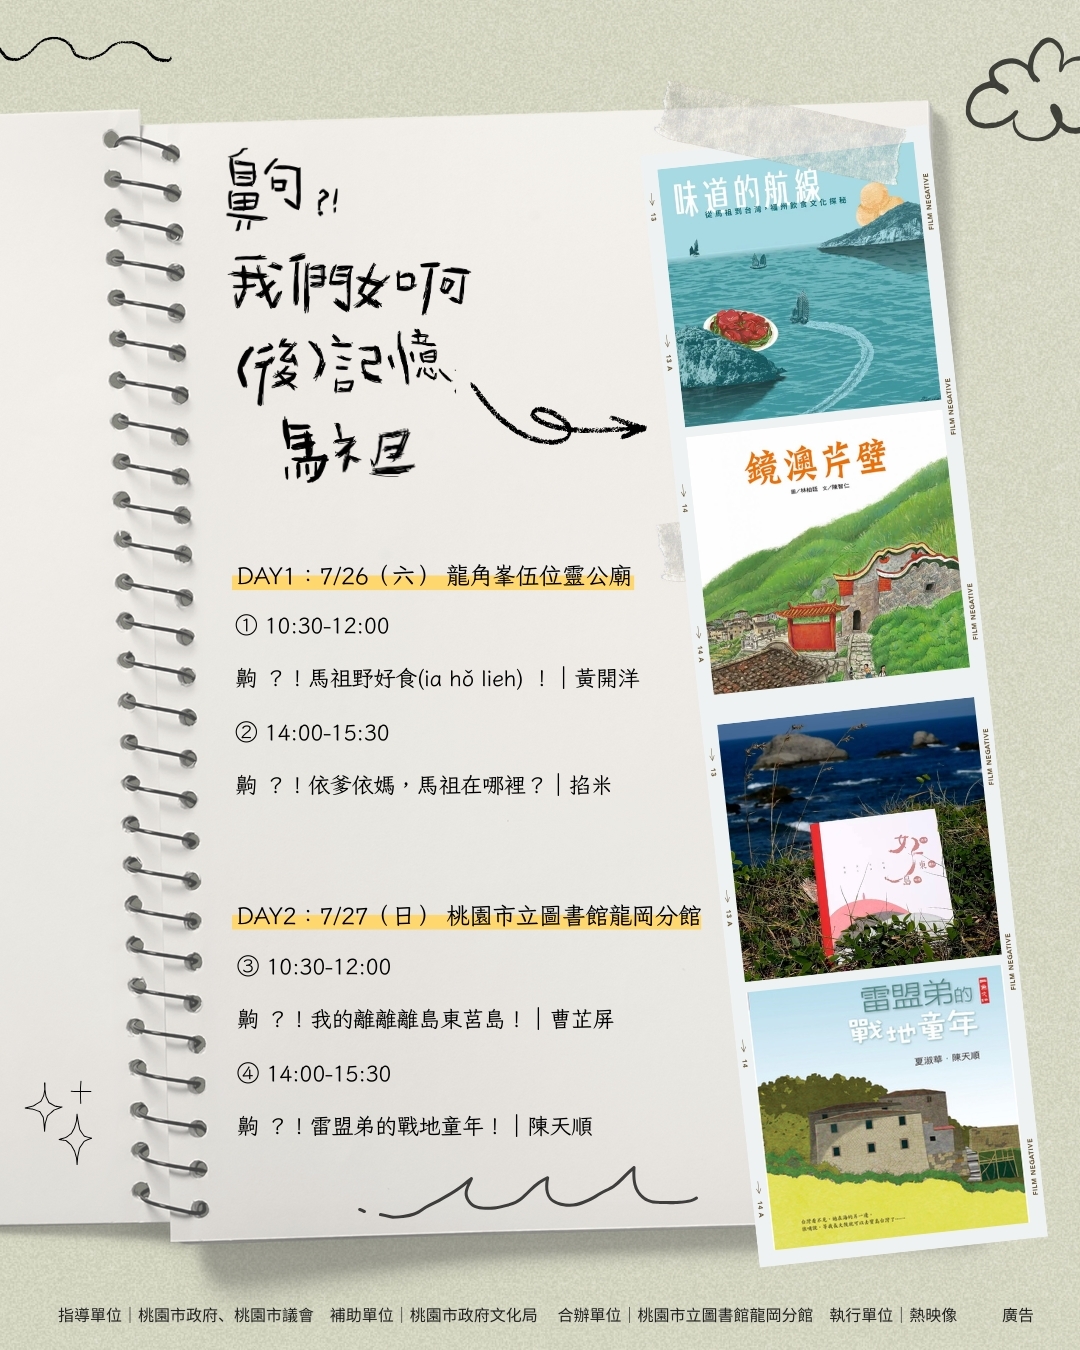 鼻句?!
我們如啊
(後)記憶
馬祖
DAY1：7/26（六） 龍角峯伍位靈公廟
① 10:30-12:00
？！馬祖野好食(ia hǒ lieh) ！｜黃開洋
② 14:00-15:30
？！依爹依媽，馬祖在哪裡？｜掐米
DAY2：7/27（日） 桃園市立圖書館龍岡分館
③ 10:30-12:00
？！我的離離離島東莒島！｜曹芷屏
④ 14:00-15:30
？！雷盟弟的戰地童年！｜陳天順
味道的航線
從馬祖到台灣，福州飲食文化探秘
鏡澳芹壁
圖／林柏廷 文／陳智仁
雷盟弟的
戰地童年
夏淑華・陳天順
13
13 A
14
14 A
13
13 A
14
14 A
FILM NEGATIVE
FILM NEGATIVE
FILM NEGATIVE
FILM NEGATIVE
FILM NEGATIVE
FILM NEGATIVE
指導單位｜桃園市政府、桃園市議會 補助單位｜桃園市政府文化局 合辦單位｜桃園市立圖書館龍岡分館 執行單位｜熱映像 廣告